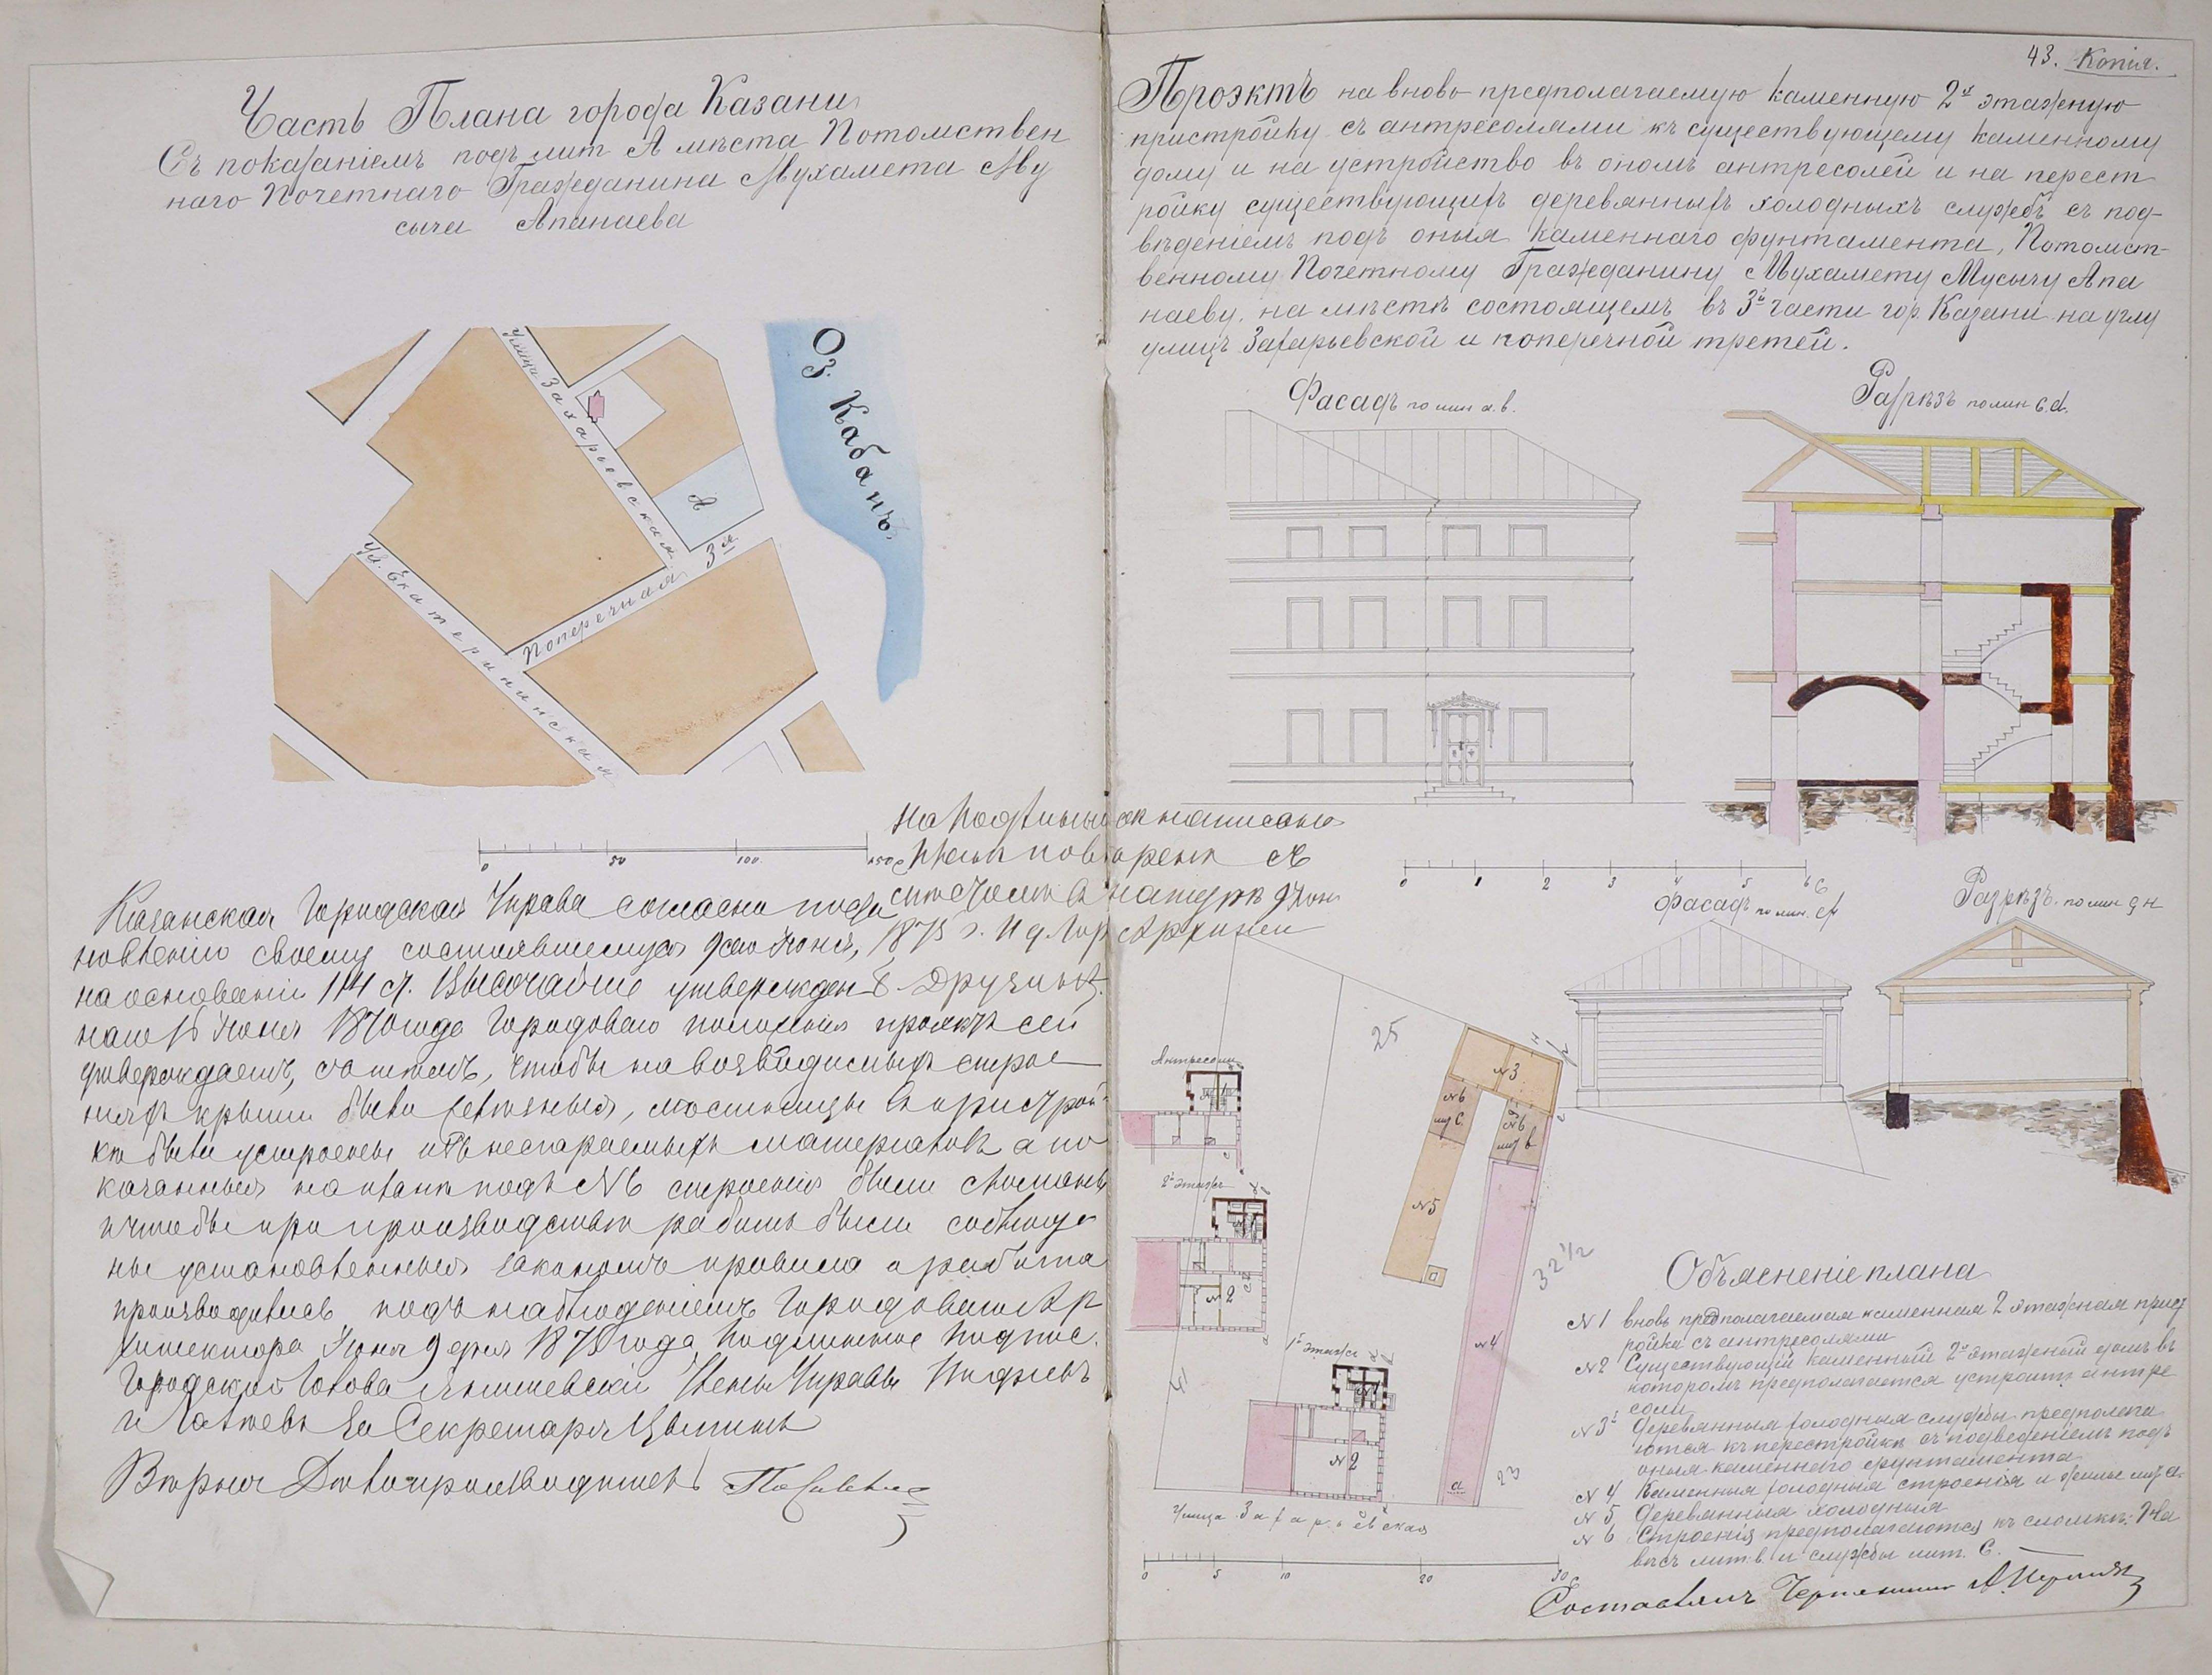 Часть Плана города Казани
Съ показаніемъ подъ лит А мѣста Потомствен
наго Почетнаго Гражданина Мухамета Му
сыча Апанаева
Оз. Кабанъ
Улица Захарьевская
А
Поперечная 3я
Ул. Екатерининская
0 50 100 150 с
Казанская Городская Управа согласно поста
новленію своему состоявшемуся 9го Іюня,
на основаніи 114 ст. Высочайше утвержден
наго 16 Іюня 1870 года Городоваго положенія проэктъ сей
утверждаетъ, съ тѣмъ, чтобы на возводимыхъ строе
ніяхъ крыши были желѣзныя, лѣстницы въ пристрой
кѣ были устроены изъ несгараемыхъ матеріаловъ а по
казанныя на планѣ подъ №6 строенія были сломаны
и чтобы при производствѣ работъ были соблюде
ны установленныя закономъ правила и работа
производилась подъ наблюденіемъ Городоваго Ар
хитектора Іюня 9 дня 1875 года Подлинное подпис.
Городской Голова Члены Управы
и за Секретаря
Вѣрно: Дѣлопроизводитель
На подлинномъ написано
Планъ повѣренъ А
въ натурѣ 9 Іюн
1875 г. И д Гор Архитек
43. Копія.
Проэктъ на вновь предполагаемую каменную 2х этажную
пристройку съ антресолями къ существующему каменному
дому и на устройство въ ономъ антресолей и на перест
ройку существующихъ деревянныхъ холодныхъ службъ съ под-
вѣденіемъ подъ оныя каменнаго фунтамента, Потомст-
венному Почетному Гражданину Мухамету Мусычу Апа
наеву, на мѣстѣ состоящемъ въ 3й части гор. Казани на углу
улицъ Захарьевской и поперечной третей.
Фасадъ по лин a.b.
Разрѣзъ по лин c.d.
0 1 2 3 4 5 6 с
Фасадъ по лин. ef
Разрѣзъ по лин g н
25
Антресоли
№3
№6
лит С.
№6
лит b
2й этажъ
№5
№ 2
32 1/2
1й этажъ
№4
№ 2
a
23
Улица Захарьевская
0 5 10 20 30 с
Объясненіе плана
№ 1 вновь предполагаемая каменная 2 этажная прист
ройка съ антресолями
№2 Существующій каменный 2х этажный домъ въ
которомъ предполагается устроить антре
соли
№3й Деревянныя холодныя службы предпола
ются къ перестройкѣ съ подведеніемъ подъ
оныя каменнаго фунтамента
№ 4 Каменныя холодныя строенія и жилые лит а.
№ 5 Деревянныя холодныя
№ 6 Строенія предполагаются къ сломкѣ: На
вѣсъ лит. в. и службы лит. С.
Составлялъ Чертежникъ А.